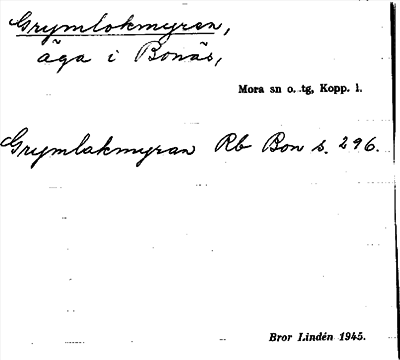 Grymlokmyren,
äga i Bonäs,
Mora sn o. tg, Kopp. l.
Grymlakmyran Rb Bon s. 296.
Bror Lindén 1945.